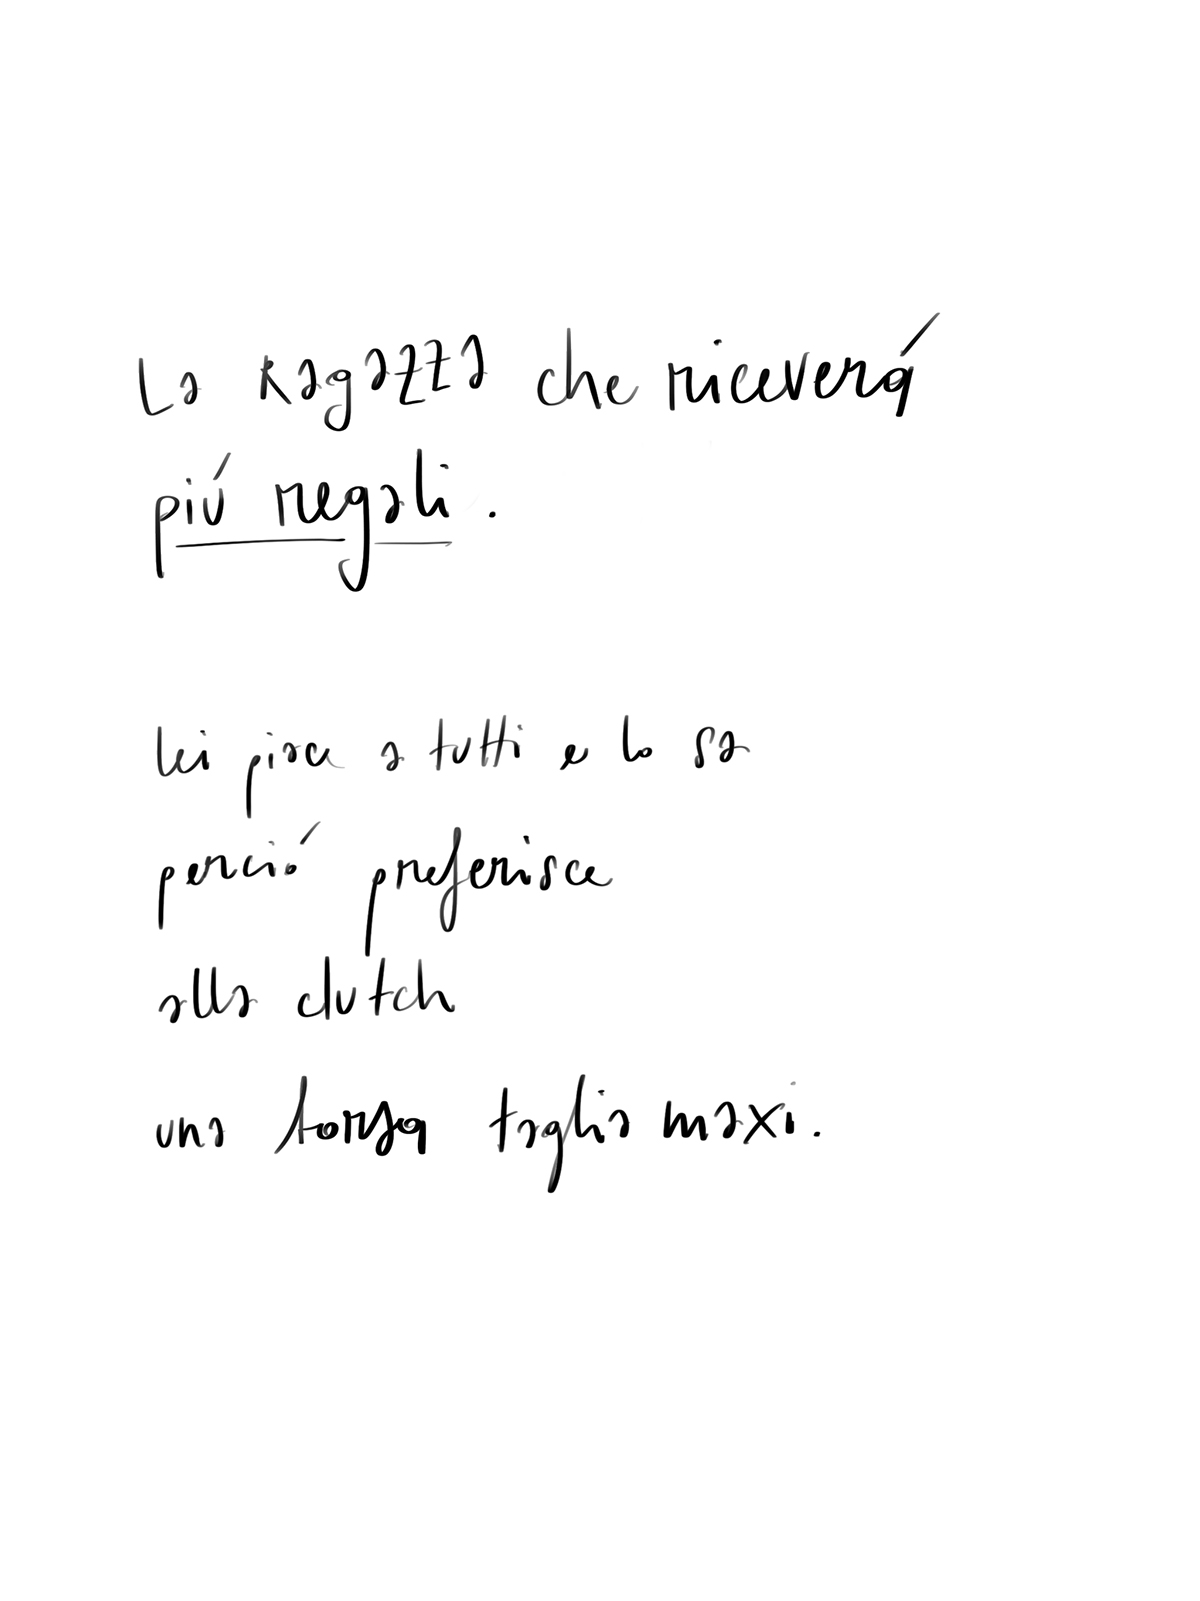 La Ragazza che riceverá
piú regali.
lei piace a tutti e lo sa
perció preferisce
alla clutch
una borsa taglia maxi.